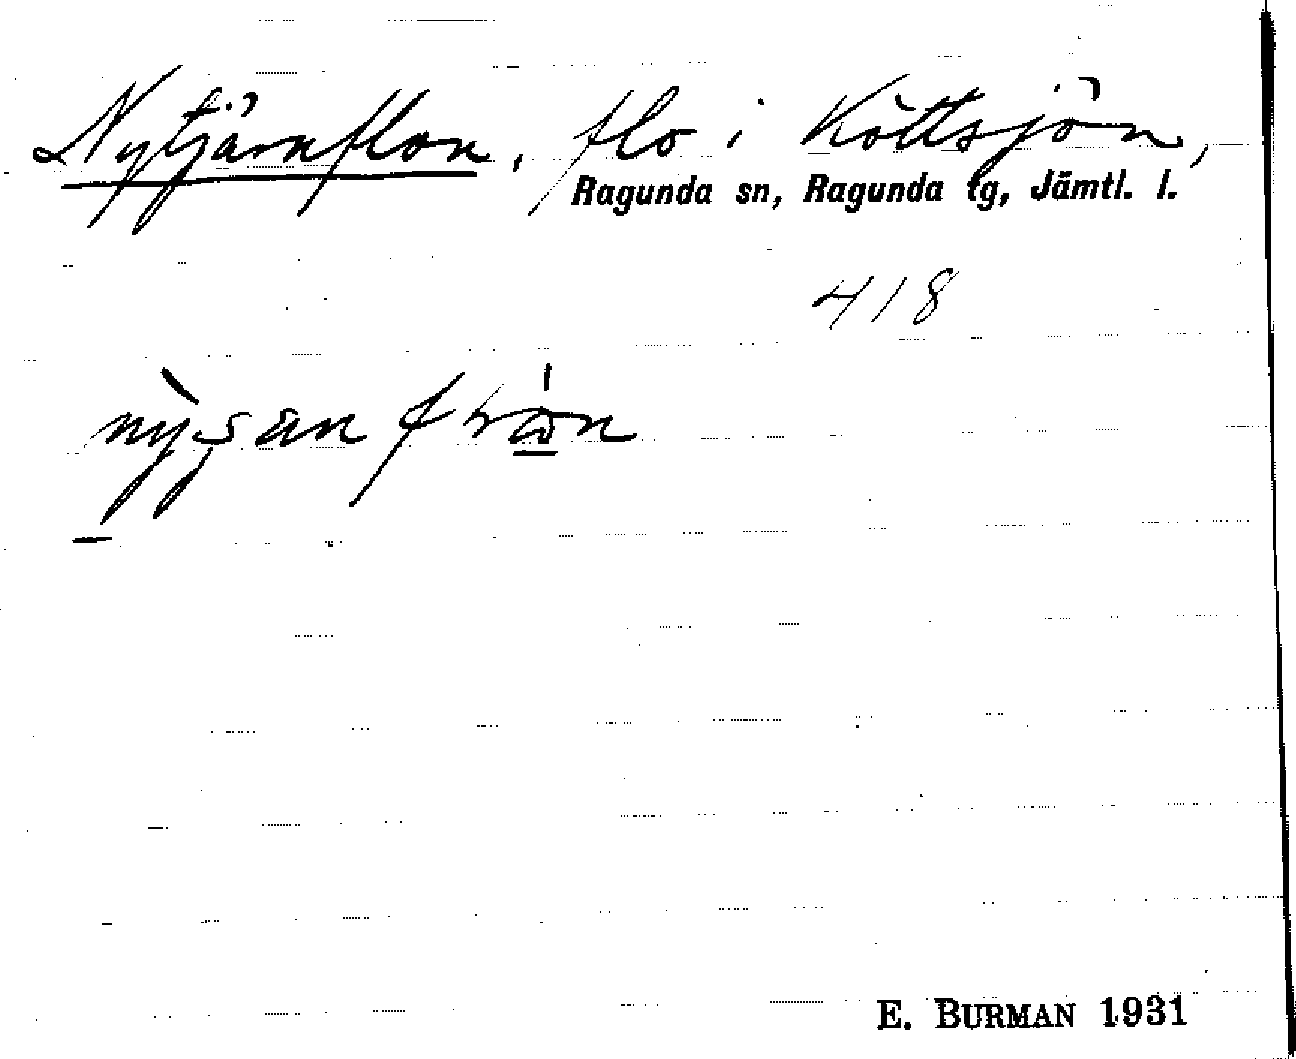 Nytjärnflon, flo i Köttsjön,
Ragunda sn, Ragunda tg, Jämtl. l.
418
E. BURMAN 1931